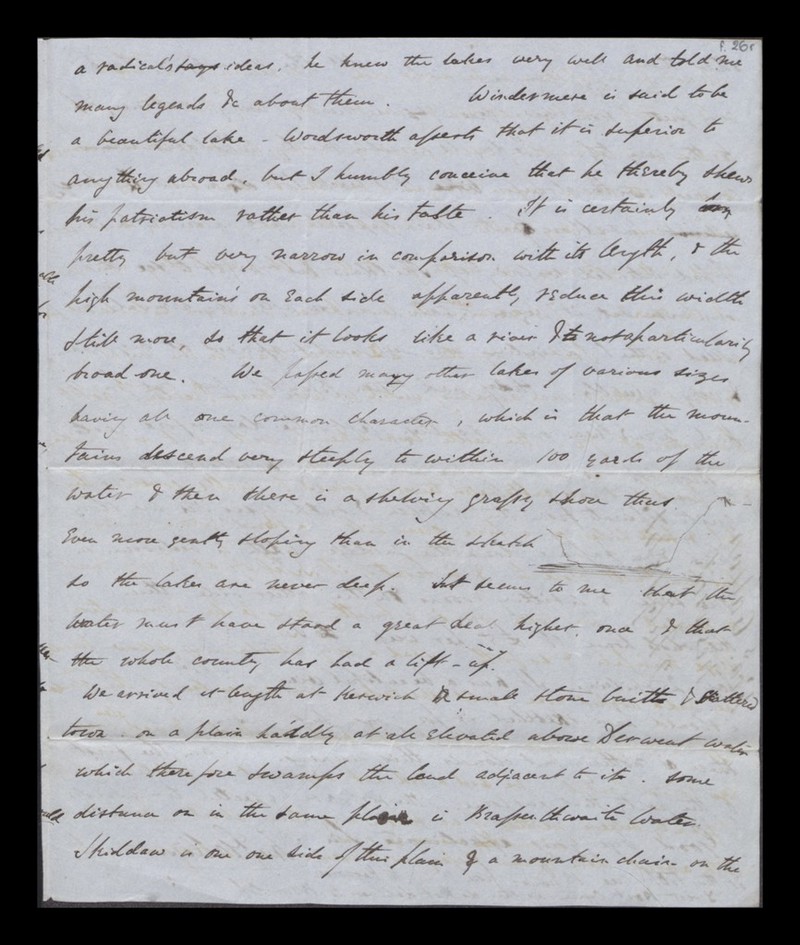 P. 26r
a radical's ideas. he knew the lakes very well and told me
many legends &c about them. Windermere is said to be
a beautiful lake - Wordsworth asserts that it is superior to
anything abroad, but I humbly conceive that he thereby shews
his patriotism rather than his taste. It is certainly
pretty but very narrow in comparison with its length, & the
high mountains on each side apparently reduce this width
still more, so that it looks like a river & not a particularly
broad one. We passed many other lakes of various sizes
having all one common character, which is that the moun-
tains descend very steeply to within 100 yards of the
water & then there is a shelving grassy shore thus
Even more gently sloping than in the sketch
so the lakes are never deep. It seems to me that the
water must have stood a great deal higher once & that
the whole country has had a lift-up.
We arrived at length at Keswick a small stone built & scattered
town on a plain hardly at all elevated above Derwent water
which therefore swamps the land adjacent to it. Some
distance on in the same plain is Bassenthwaite Water
Skiddaw is one one side of this plain & a mountain chain on the